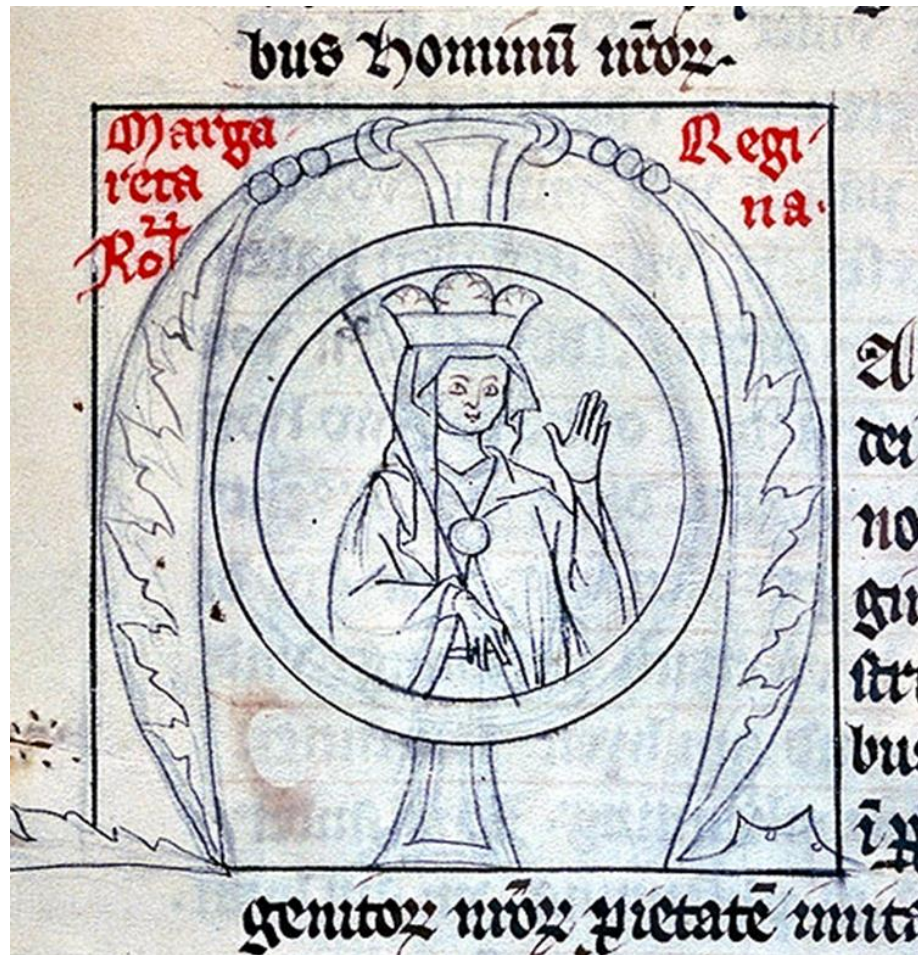 bus hominū nr̄oꝝ.
Marga
reta
Roꝝ
Regi
na.
Al
dei
no
gin
stri
bus
ī
genitoꝝ nr̄oꝝ pietatē imita